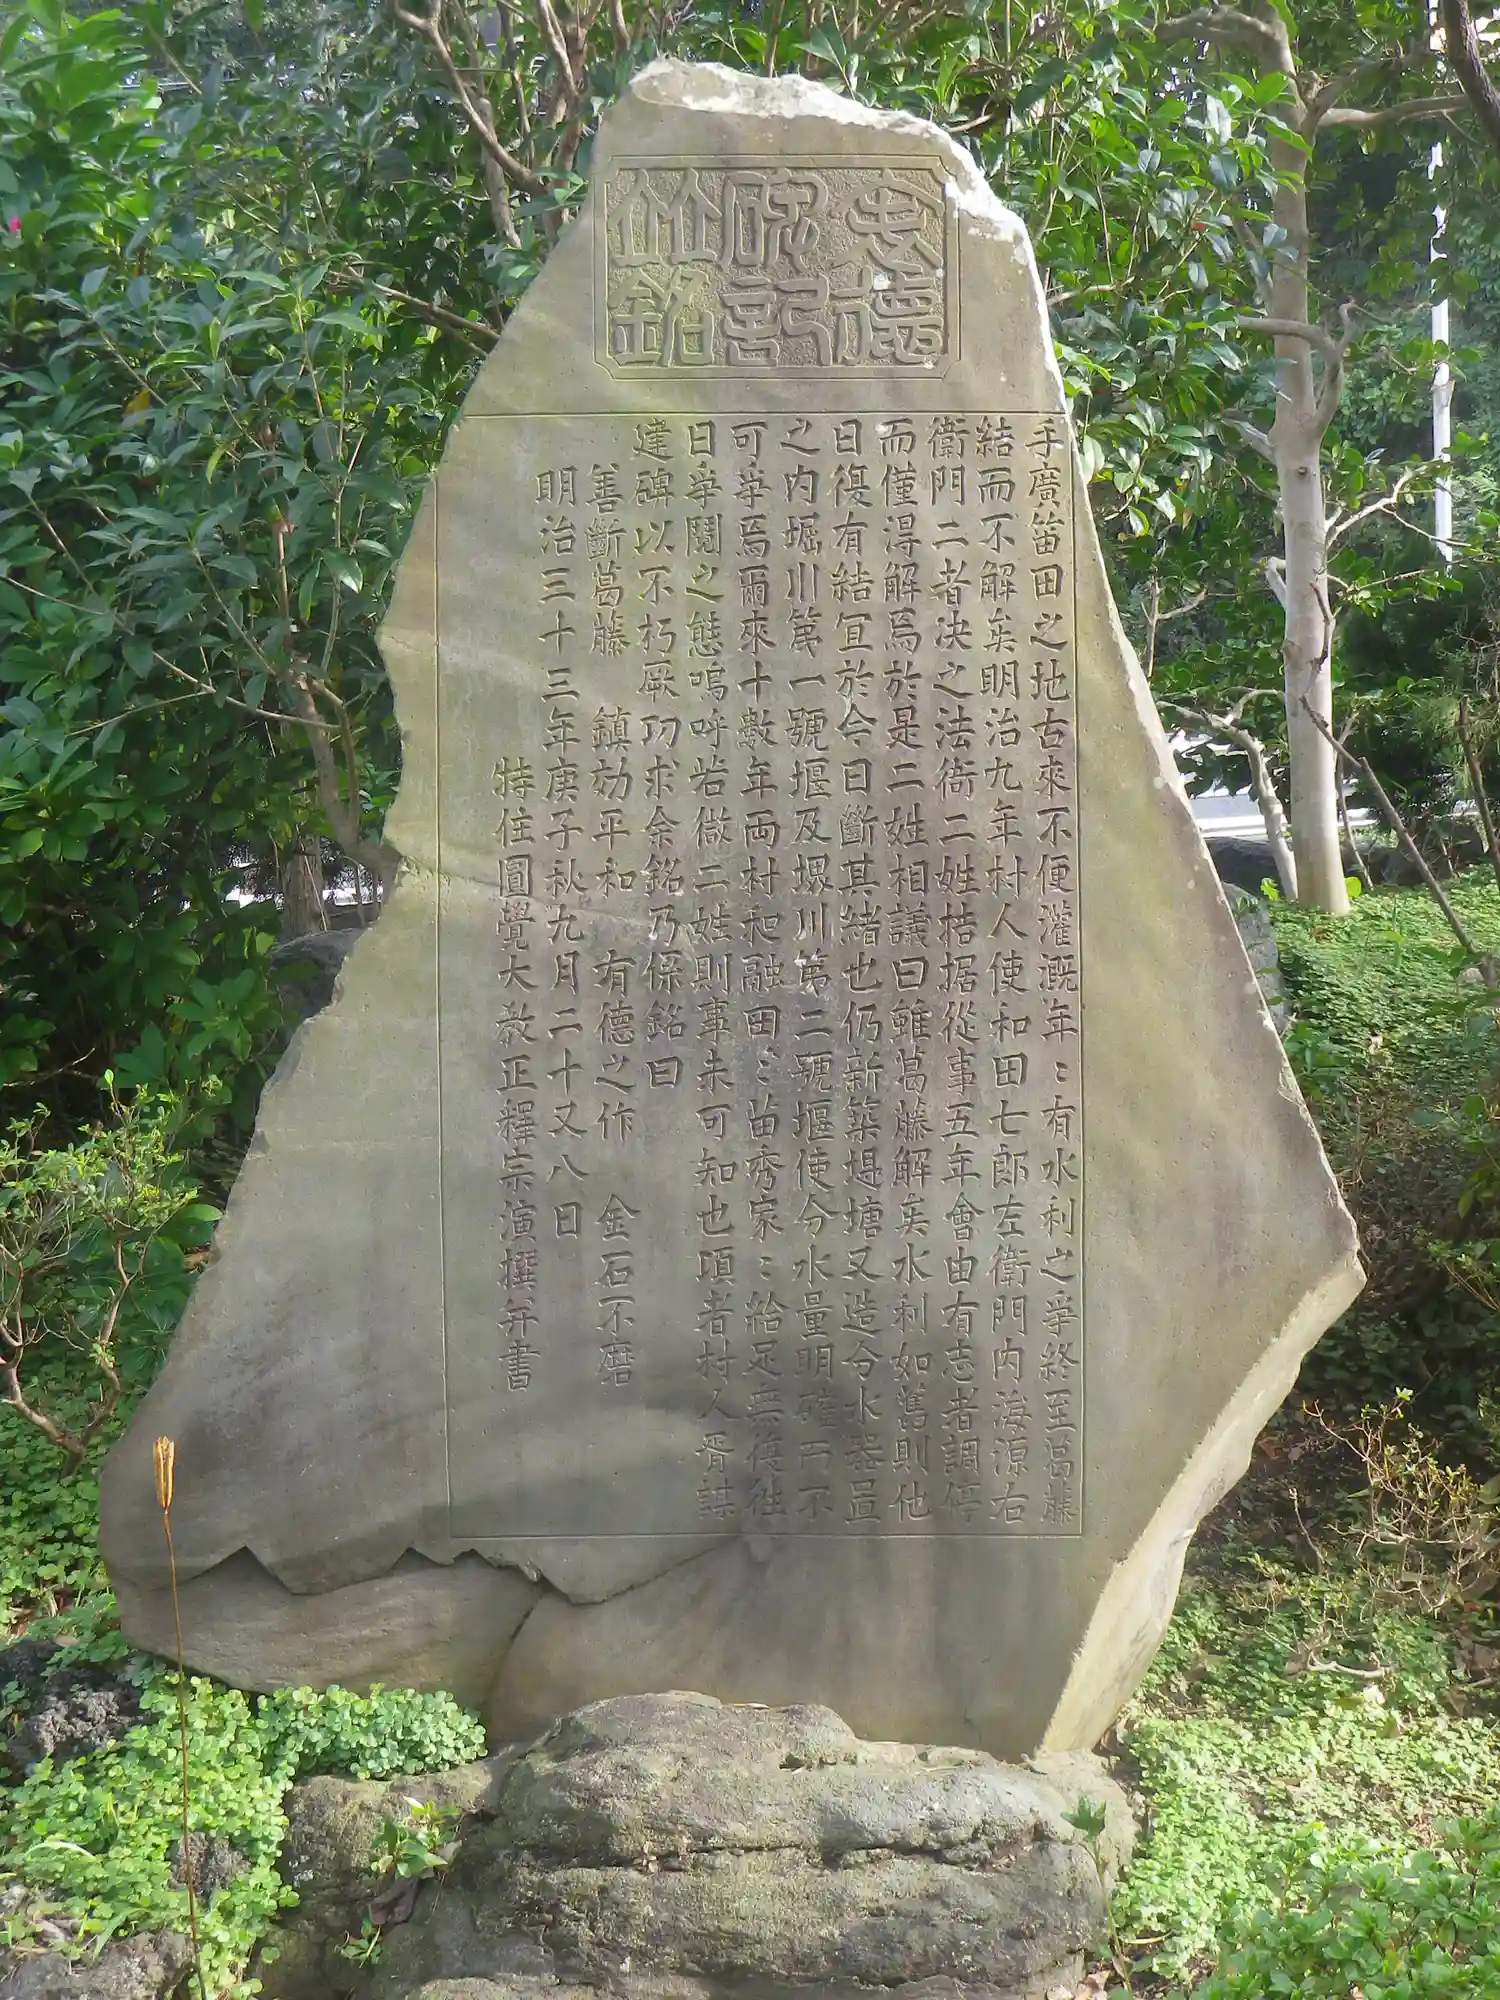 彰德
碑記
竝銘
手廣笛田之地古來不便灌漑年〻有水利之爭終至葛藤
結而不解矣明治九年村人使和田七郎左衛門内海源右
衛門二者決之法衙二姓拮据從事五年會由有志者調停
而僅得解焉於是二姓相議曰雖葛藤解矣水利如舊則他
日復有結冝於今日斷其緒也仍新築堤塘又造分水器置
之内堀川第一號堰及堺川第二號堰使分水量明確而不
可爭焉爾來十數年両村和融田〻苗秀家〻給足無復徃
日爭鬩之態嗚呼若微二姓則事未可知也頃者村人胥謀
建碑以不朽厥功求余銘乃係銘曰
善斷葛藤 鎮効平和 有德之作 金石不磨
明治三十三年庚子秋九月二十又八日
特住圓覺大教正釋宗演撰并書